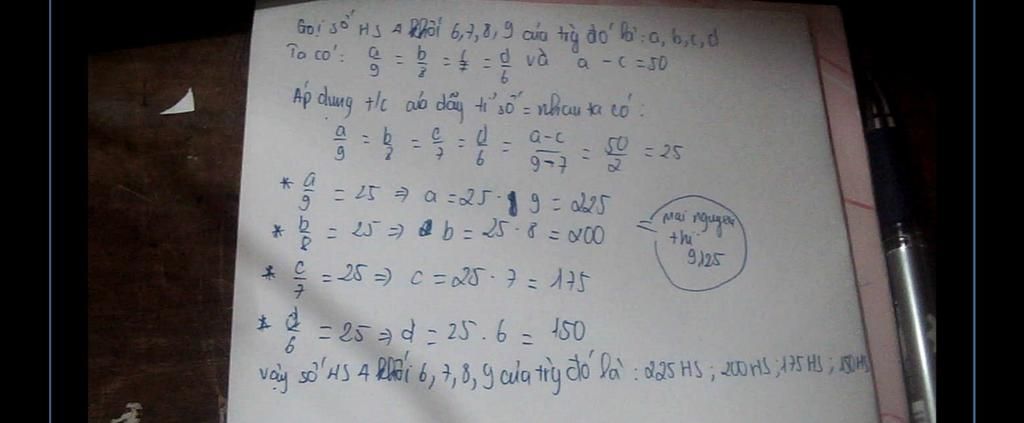 Gọi số HS 4 khối 6,7,8,9 của trg đó là: a, b, c, d
Ta có: a/9 = b/8 = c/7 = d/6 và a - c = 50
Áp dụng t/c của dãy tỉ số = nhau ta có:
a/9 = b/8 = c/7 = d/6 = a-c/9-7 = 50/2 = 25
* a/9 = 25 => a = 25 . 9 = 225
* b/8 = 25 => b = 25 . 8 = 200
= mai nguyen
thi
9125
* c/7 = 25 => c = 25 . 7 = 175
* d/6 = 25 => d = 25 . 6 = 150
Vậy số HS 4 khối 6,7,8,9 của trg đó là: 225 HS; 200 HS; 175 HS; 150 HS